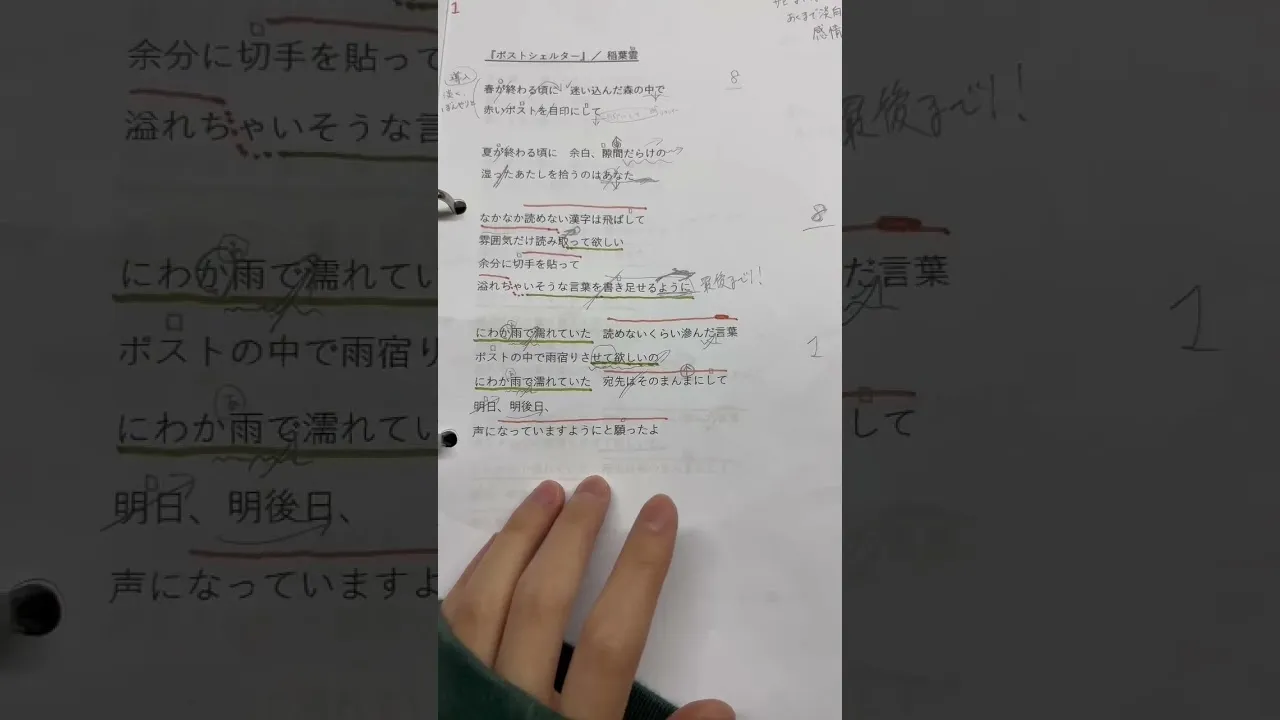 1
『ポストシェルター』／ 稲葉曇
導入
8
春が終わる頃に　迷い込んだ森の中で
赤いポストを目印にして
夏が終わる頃に　余白、隙間だらけの
湿ったあたしを拾うのはあなた
なかなか読めない漢字は飛ばして
8
雰囲気だけ読み取って欲しい
余分に切手を貼って
溢れちゃいそうな言葉を書き足せるように
最後まで!!
にわか雨で濡れていた　読めないくらい滲んだ言葉
1
ポストの中で雨宿りさせて欲しいの
にわか雨で濡れていた　宛先はそのまんまにして
明日、明後日、
声になっていますようにと願ったよ